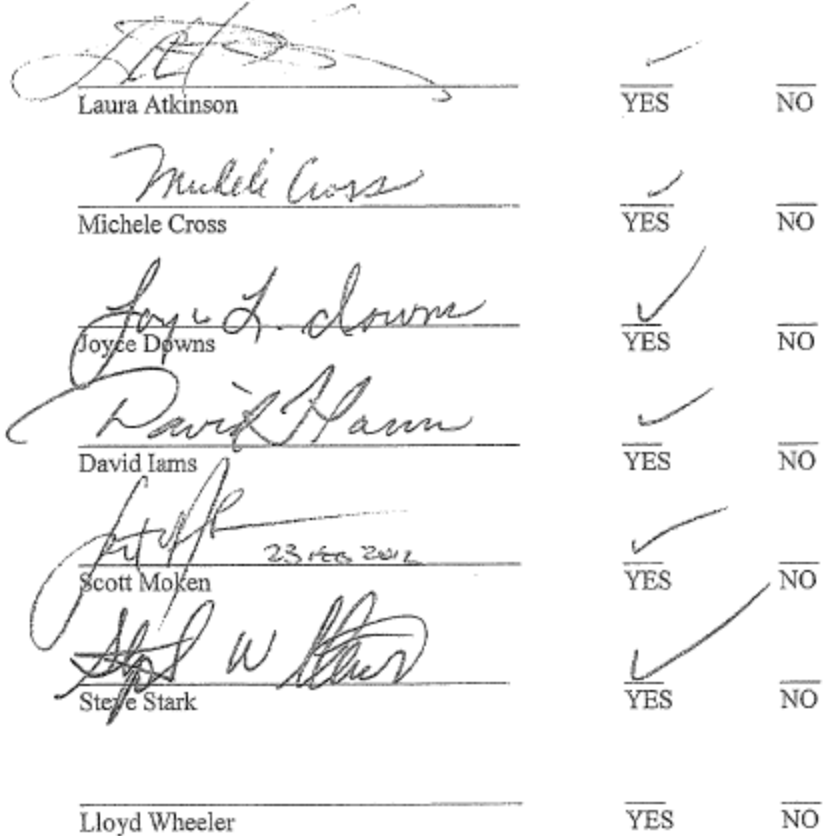 Laura Atkinson YES NO
Michele Cross
Michele Cross YES NO
Joyce L. Downs
Joyce Downs YES NO
David
David Iams YES NO
23 FEB 2012
Scott Moken YES NO
W
Steve Stark YES NO
Lloyd Wheeler YES NO